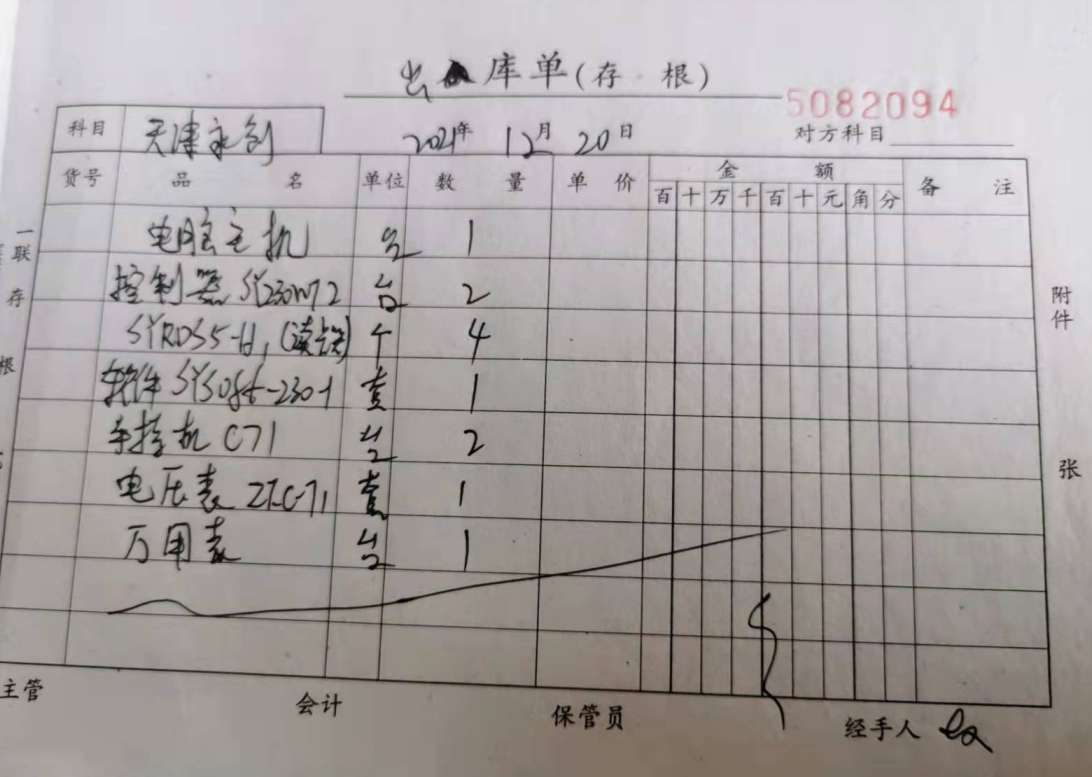 出库单(存根)
5082094
科目 天津永创 2021年 12月 20日 对方科目
货号 品名 单位 数量 单价 金额 备注
百 十 万 千 百 十 元 角 分
电脑主机 台 1
控制器 SY230NT2 台 2
SYRDS5-H,(读头) 个 4
软件 1
手控机 C71 台 2
电压表 套 1
万用表 台 1
一联存根
附件 张
主管 会计 保管员 经手人